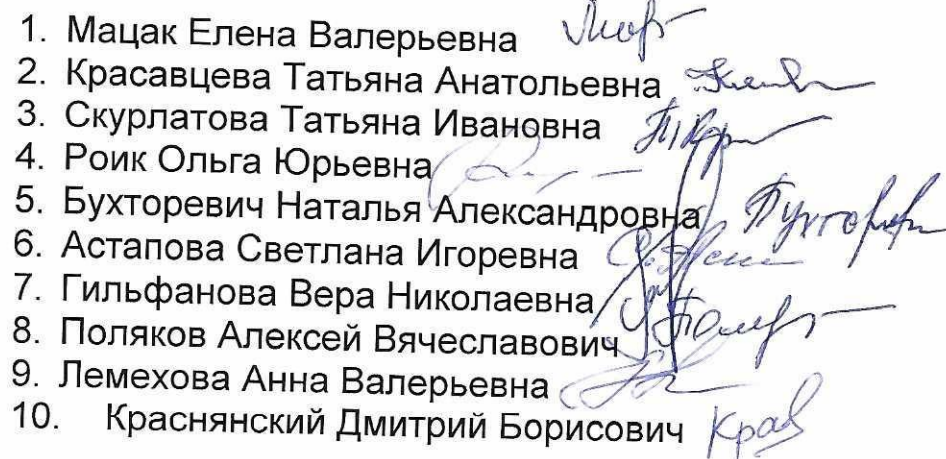 1. Мацак Елена Валерьевна
2. Красавцева Татьяна Анатольевна
3. Скурлатова Татьяна Ивановна
4. Роик Ольга Юрьевна
5. Бухторевич Наталья Александровна
6. Астапова Светлана Игоревна
7. Гильфанова Вера Николаевна
8. Поляков Алексей Вячеславович
9. Лемехова Анна Валерьевна
10. Краснянский Дмитрий Борисович